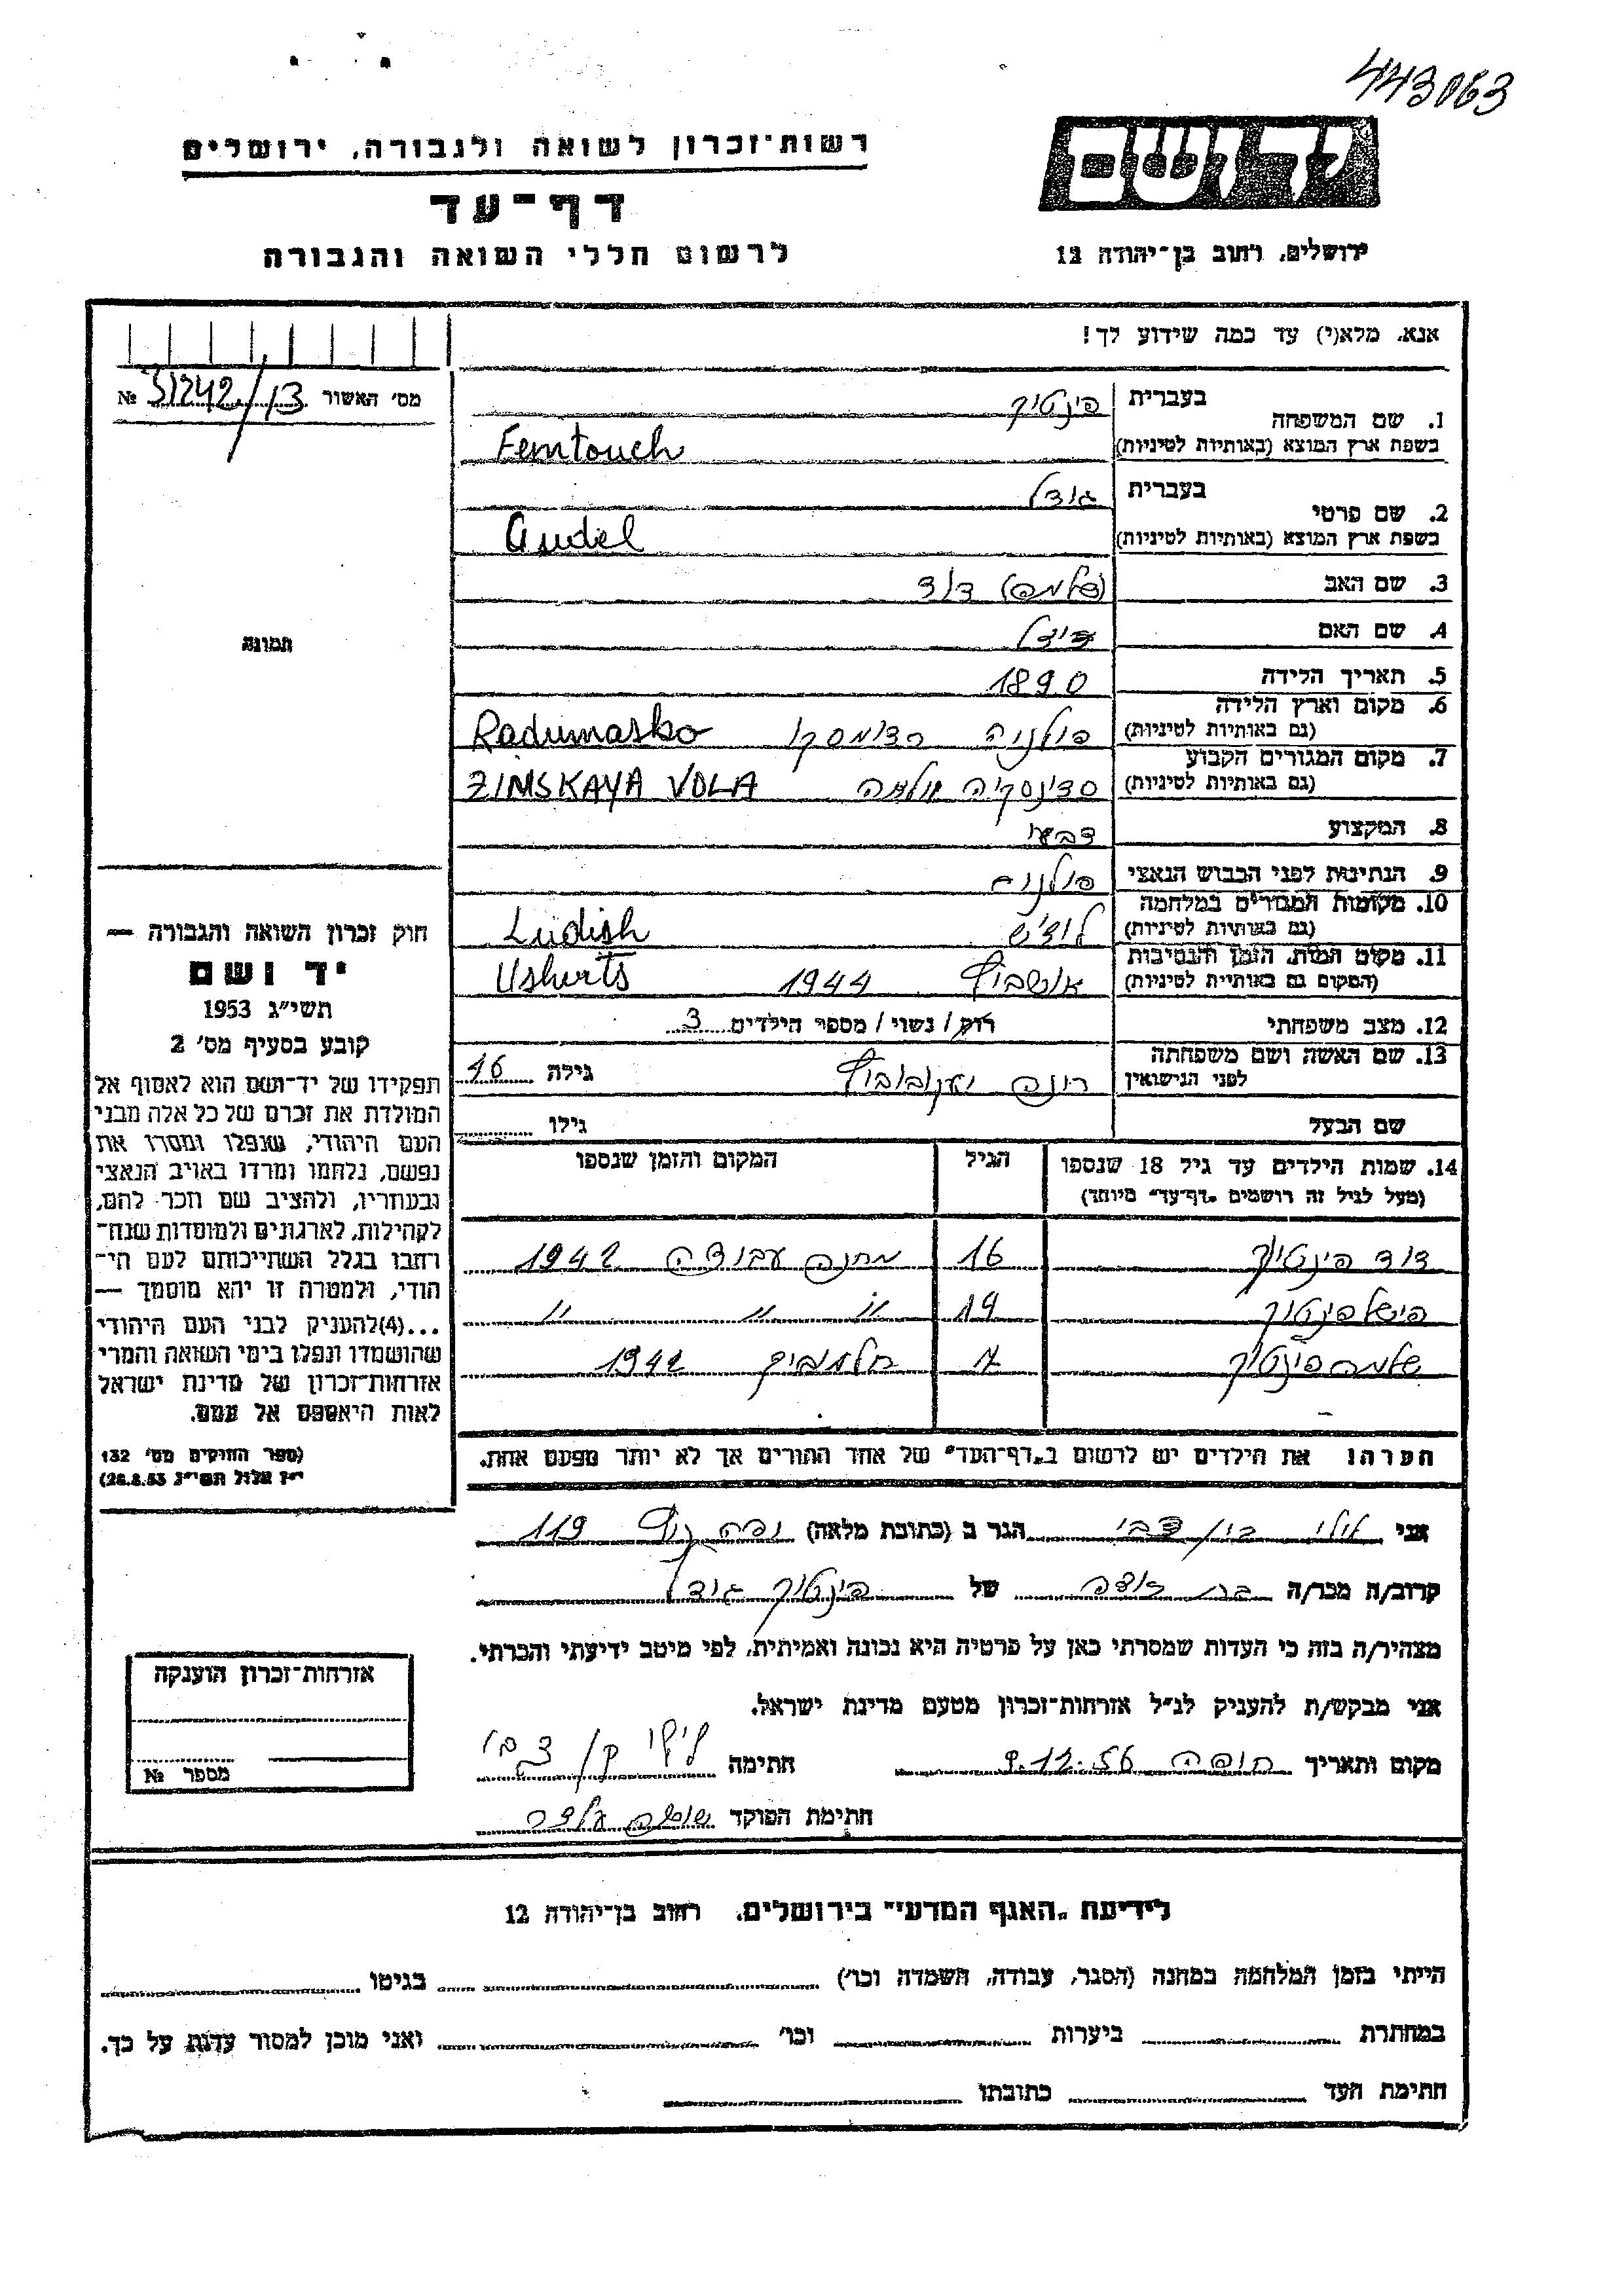 443063
רשות־זכרון לשואה ולגבורה, ירושלים
יד ושם
דף־עד
לרשום חללי השואה והגבורה
ירושלים, רחוב בן־יהודה 12
אנא, מלא(י) עד כמה שידוע לך!
מס׳ האשור 31242/13 №
1. שם המשפחה בעברית פינטוך
בשפת ארץ המוצא (באותיות לטיניות) Femtouch
2. שם פרטי בעברית גודל
בשפת ארץ המוצא (באותיות לטיניות) Gudel
3. שם האב (שלמה) דוד
4. שם האם
5. תאריך הלידה 1890
6. מקום וארץ הלידה פולניה רדומסקו Radumasko
(גם באותיות לטיניות)
7. מקום המגורים הקבוע ZINSKAYA VOLA
(גם באותיות לטיניות)
8. המקצוע
9. הנתינות לפני הכבוש הנאצי פולנית
10. מקומות המגורים במלחמה לודז׳ש Ludish
(גם באותיות לטיניות)
11. מקום המות, הזמן והנסיבות אושביץ 1944 Usherts
(המקום גם באותיות לטיניות)
12. מצב משפחתי רוק/ נשוי/ מספר הילדים 3
13. שם האשה ושם משפחתה לפני הנישואין רינה יעקובוביץ גילה 46
שם הבעל גילו
14. שמות הילדים עד גיל 18 שנספו הגיל המקום והזמן שנספו
(מעל לגיל זה רושמים „דף־עד״ מיוחד)
דוד פינטוך 16 מחנה עבודה 1942
פישל פינטוך 14 〃 〃 〃
שלמה פינטוך 7 1942
הערה! את הילדים יש לרשום ב„דף־העד״ של אחד ההורים אך לא יותר מפעם אחת.
תמונה
חוק זכרון השואה והגבורה —
יד ושם
תשי״ג 1953
קובע בסעיף מס׳ 2
תפקידו של יד־ושם הוא לאסוף אל
המולדת את זכרם של כל אלה מבני
העם היהודי, שנפלו ומסרו את
נפשם, נלחמו ומרדו באויב הנאצי
ובעוזריו, ולהציב שם וזכר להם,
לקהילות, לארגונים ולמוסדות שנח־
רחבו בגלל השתייכותם לעם הי־
הודי, ולמטרה זו יהא מוסמך —
...(4)להעניק לבני העם היהודי
שהושמדו ונפלו בימי השואה והמרי
אזרחות־זכרון של מדינת ישראל
לאות היאספם אל עמם.
(ספר החוקים מס׳ 132
י״ז אלול תשי״ג 28.8.53)
אני לילי בן/צבי הגר ב (כתובת מלאה) 119
קרוב/ה מכר/ה בת דודה של פינטוך גודל
מצהיר/ה בזה כי העדות שמסרתי כאן על פרטיה היא נכונה ואמיתית, לפי מיטב ידיעתי והכרתי.
אני מבקש/ת להעניק לנ״ל אזרחות־זכרון מטעם מדינת ישראל.
מקום ותאריך חיפה 9.12.56 חתימה לילי בן/צבי
חתימת הפוקד
אזרחות־זכרון הוענקה
מספר №
לידיעת „האגף המדעי״ בירושלים, רחוב בן־יהודה 12
הייתי בזמן המלחמה במחנה (הסגר, עבודה, השמדה וכו׳) בגיטו
במחתרת ביערות וכו׳ ואני מוכן למסור עדות על כך.
חתימת העד כתובתו